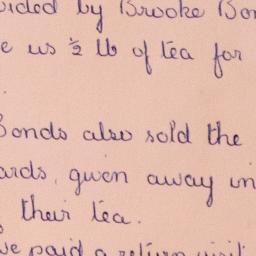 vided by Brooke Bon
e us ½ lb of tea for
Bonds also sold the
ards, given away in
their tea.
ve paid a return visit